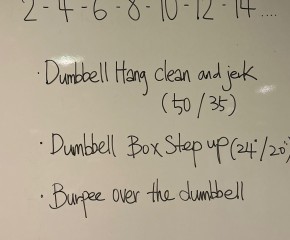 2 - 4 - 6 - 8 - 10 - 12 - 14 ....
· Dumbbell Hang clean and jerk
(50 / 35)
· Dumbbell Box Step up (24" / 20")
· Burpee over the dumbbell